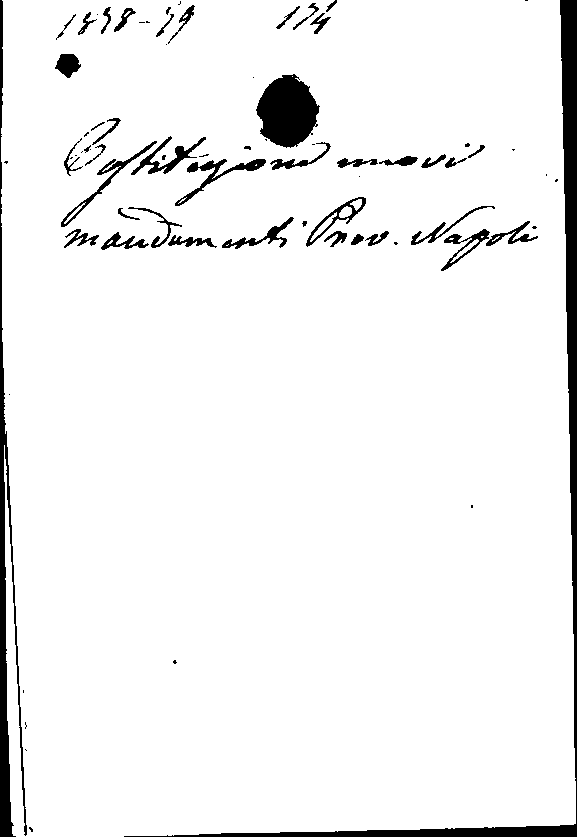 1878-79 174
Costituzione nuovi
mandamenti Prov. Napoli